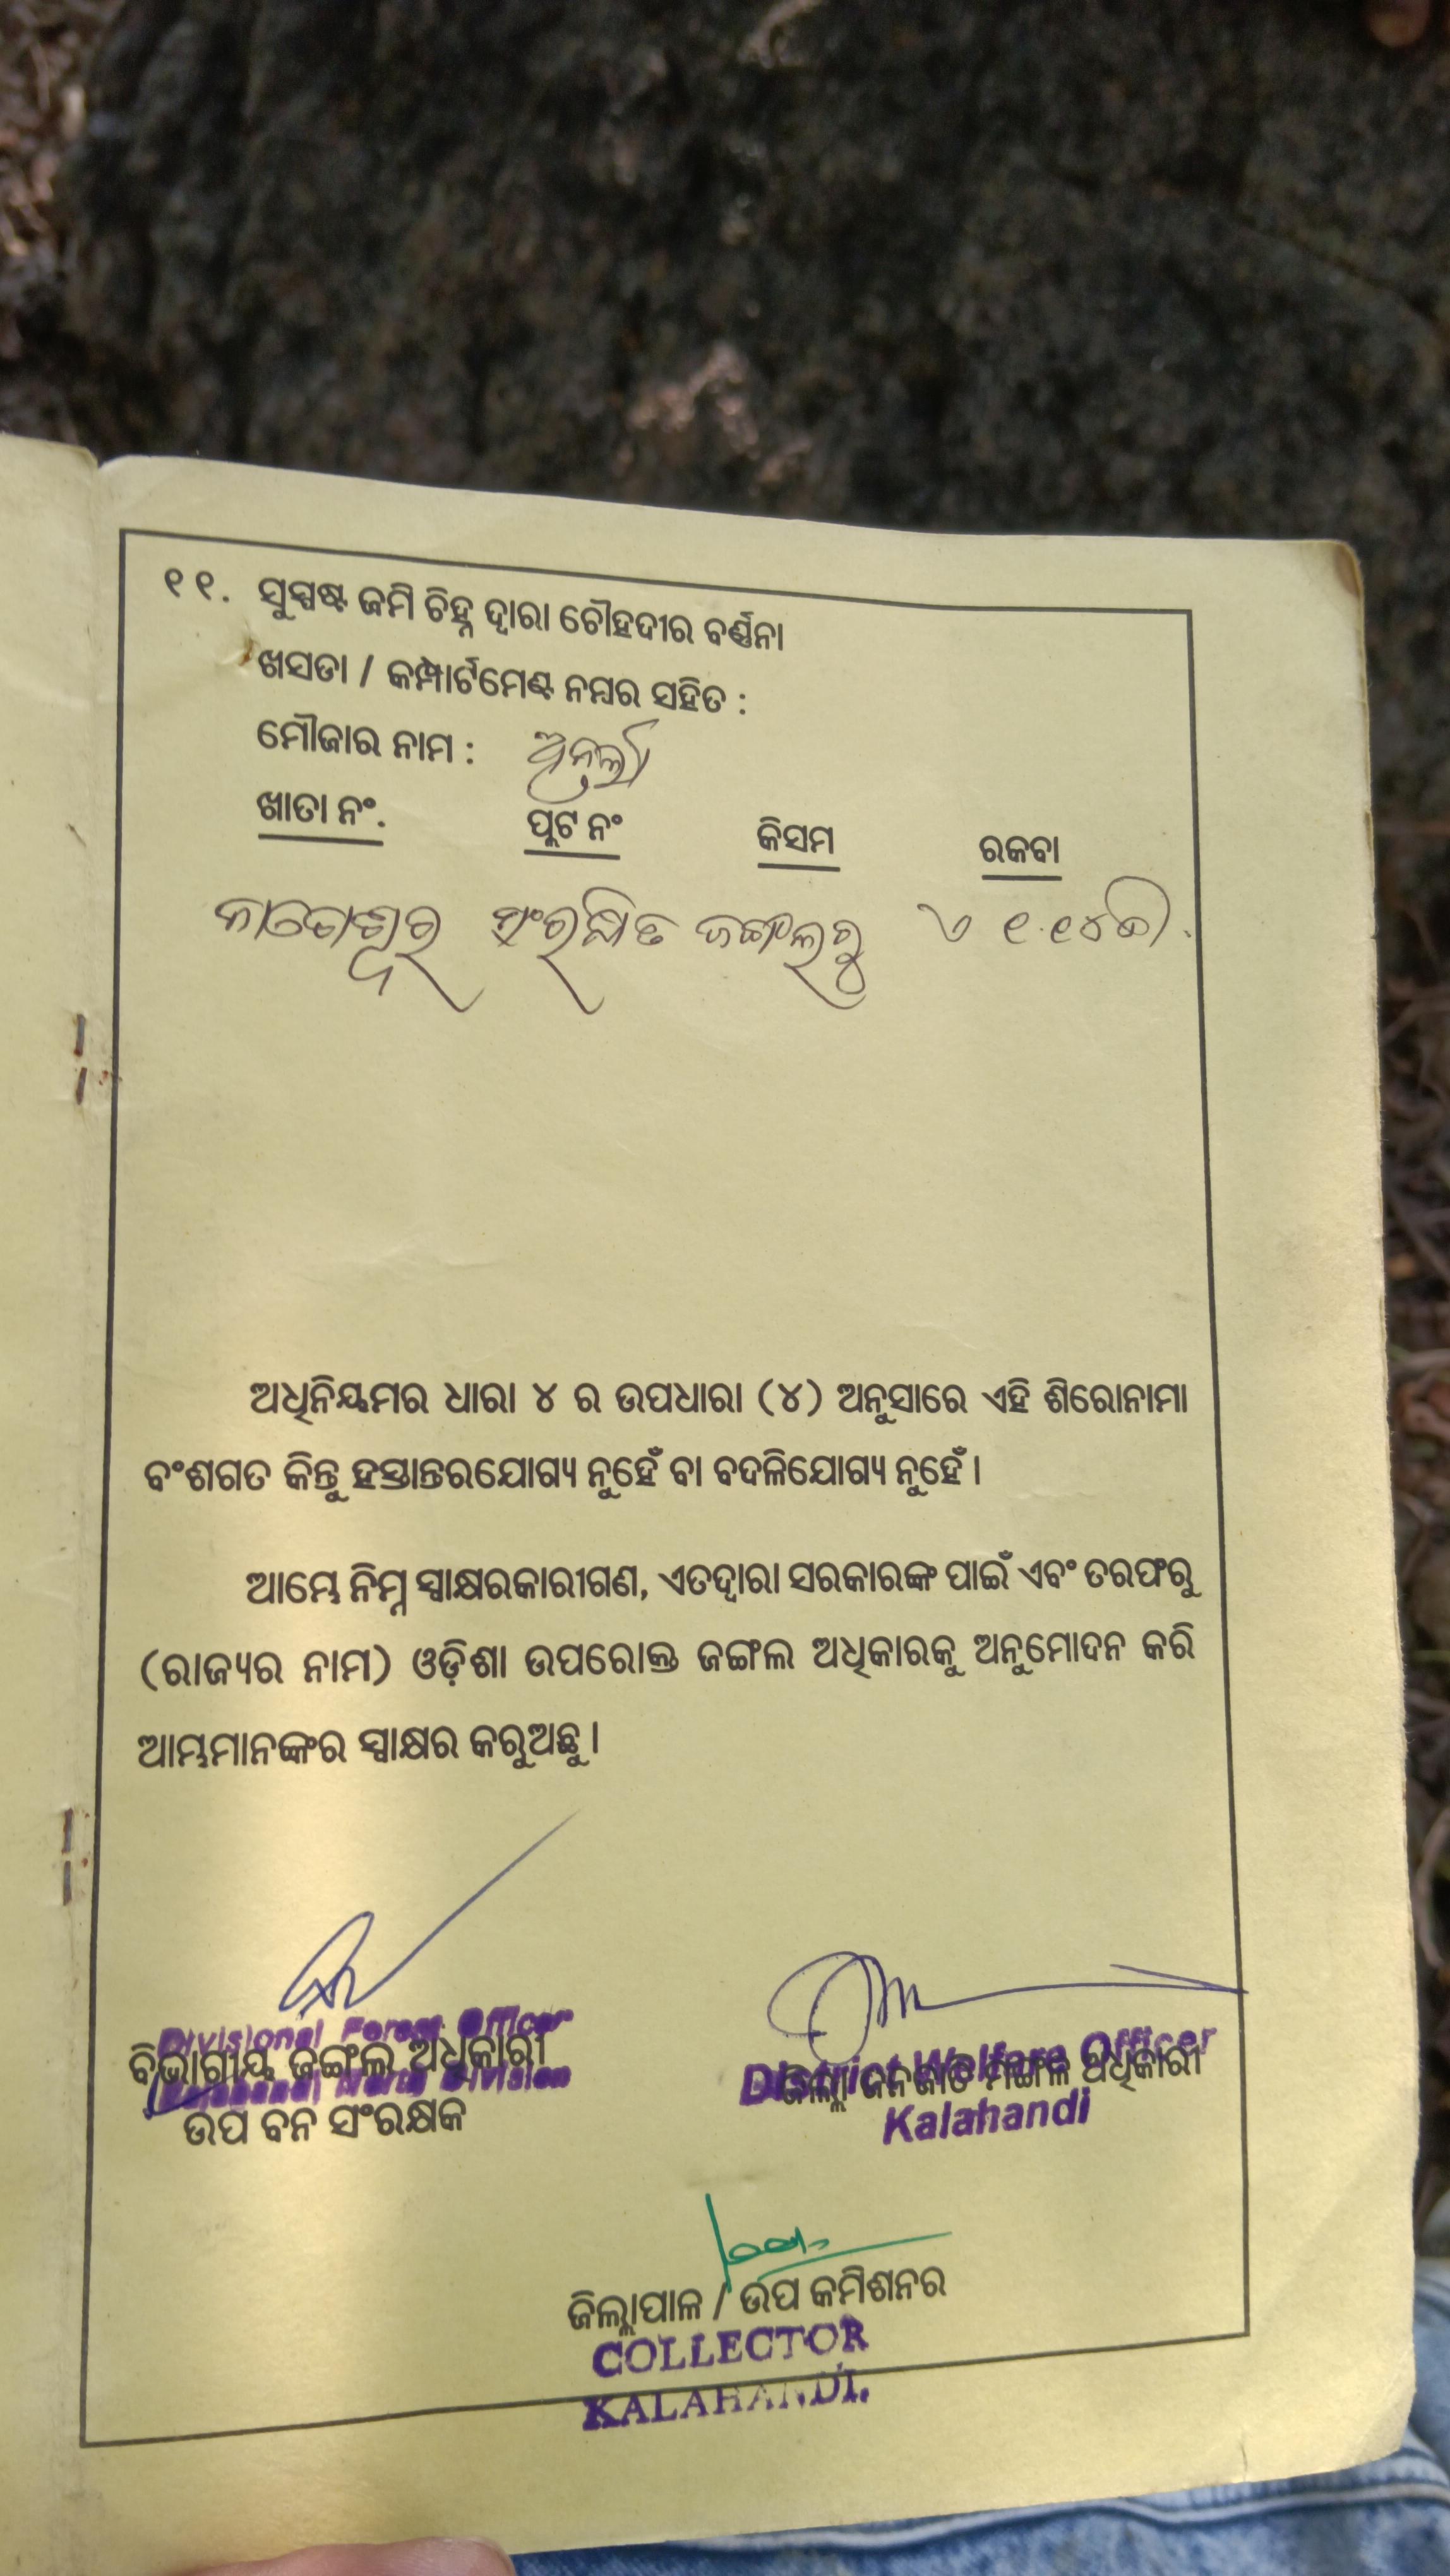 ୧୧. ସୁସ୍ପଷ୍ଟ ଜମି ଚିହ୍ନ ଦ୍ୱାରା ଚୌହଦୀର ବର୍ଣ୍ଣନା
ଖସଡା / କମ୍ପାର୍ଟମେଣ୍ଟ ନମ୍ବର ସହିତ :
ମୌଜାର ନାମ :
ଖାତା ନଂ. ପ୍ଲଟ ନଂ କିସମ ରକବା
ସଂରକ୍ଷିତ ଜଙ୍ଗଲରୁ ଏ ୧.୧୪ ଡି.
ଅଧିନିୟମର ଧାରା ୪ ର ଉପଧାରା (୪) ଅନୁସାରେ ଏହି ଶିରୋନାମା
ବଂଶଗତ କିନ୍ତୁ ହସ୍ତାନ୍ତରଯୋଗ୍ୟ ନୁହେଁ ବା ବଦଳିଯୋଗ୍ୟ ନୁହେଁ ।
ଆମ୍ଭେ ନିମ୍ନ ସ୍ୱାକ୍ଷରକାରୀଗଣ, ଏତଦ୍ୱାରା ସରକାରଙ୍କ ପାଇଁ ଏବଂ ତରଫରୁ
(ରାଜ୍ୟର ନାମ) ଓଡ଼ିଶା ଉପରୋକ୍ତ ଜଙ୍ଗଲ ଅଧିକାରକୁ ଅନୁମୋଦନ କରି
ଆମ୍ଭମାନଙ୍କର ସ୍ୱାକ୍ଷର କରୁଅଛୁ ।
Divisional Forest Officer
ବିଭାଗୀୟ ଜଙ୍ଗଲ ଅଧିକାରୀ
Kalahandi North Division
ଉପ ବନ ସଂରକ୍ଷକ
District Welfare Officer
ଜିଲ୍ଲା ଜନଜାତି ମଙ୍ଗଳ ଅଧିକାରୀ
Kalahandi
ଜିଲ୍ଲାପାଳ / ଉପ କମିଶନର
COLLECTOR
KALAHANDI.